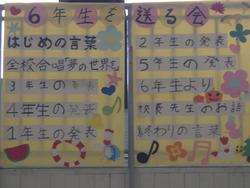 6年生を送る会
はじめの言葉
全校合唱夢の世界を
3年生の発表
4年生の発表
1年生の発表
2年生の発表
5年生の発表
6年生より
校長先生のお話
終わりの言葉